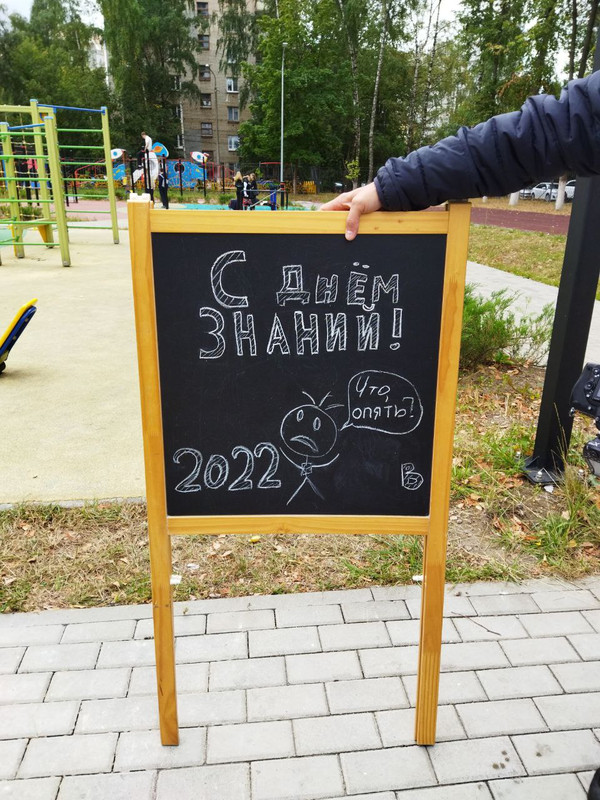 С ДНЁМ
ЗНАНИЙ!
Что,
опять?
2022
В